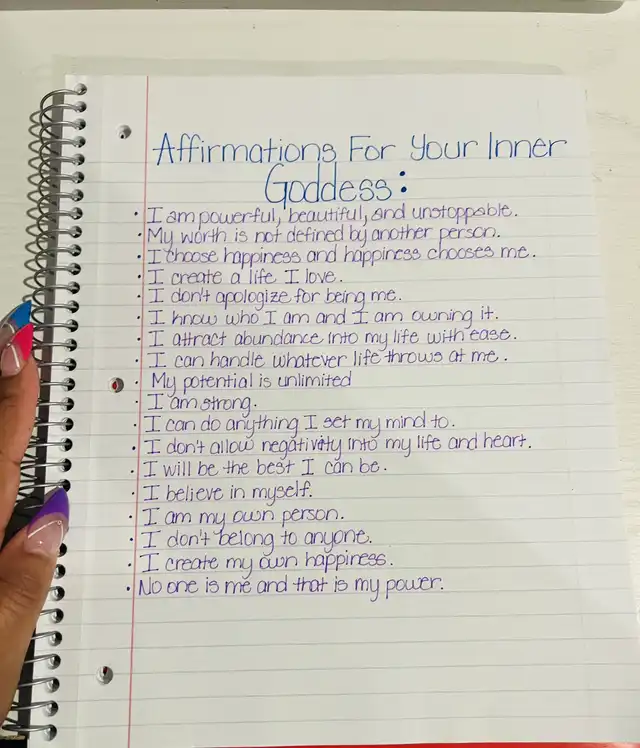 Affirmations For Your Inner
Goddess:
• I am powerful, beautiful, and unstoppable.
• My worth is not defined by another person.
• I choose happiness and happiness chooses me.
• I create a life I love.
• I don't apologize for being me.
• I know who I am and I am owning it.
• I attract abundance into my life with ease.
• I can handle whatever life throws at me.
• My potential is unlimited
• I am strong.
• I can do anything I set my mind to.
• I don't allow negativity into my life and heart.
• I will be the best I can be.
• I believe in myself.
• I am my own person.
• I don't belong to anyone.
• I create my own happiness.
• No one is me and that is my power.